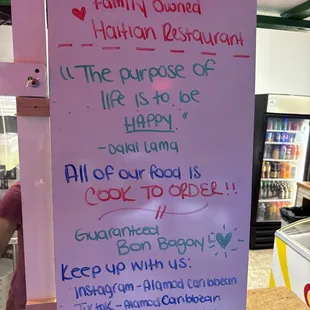 Family Owned
Haitian Restaurant
"The purpose of
life is to be
HAPPY."
-Dalai Lama
All of our food is
COOK TO ORDER!!
Guaranteed
Bon Bagay!
Keep up with us:
Instagram-Alamod Caribbean
TikTok-Alamod Caribbean